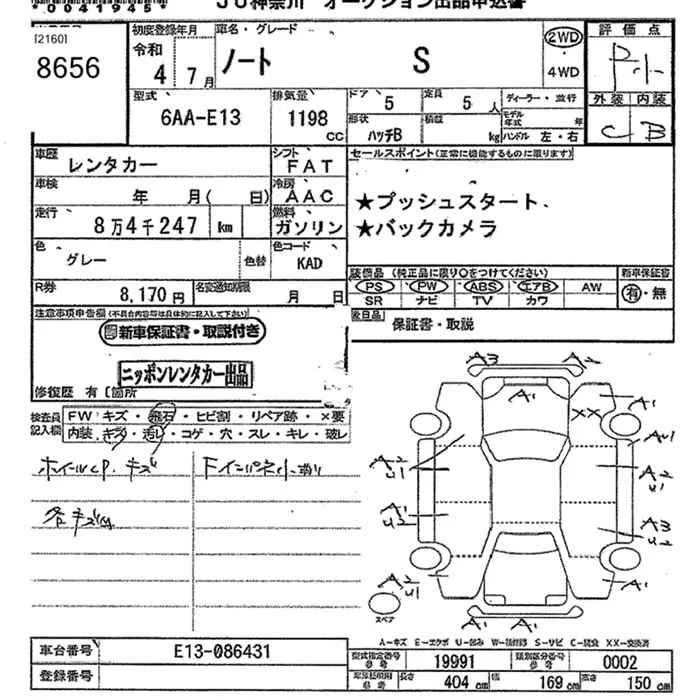 *0041945*
JU神奈川 オークション出品申込書
[2160]
8656
初度登録年月
令和 4年 7月
車名・グレード
ノート S
2WD
4WD
評価点
外装 内装
C B
型式
6AA-E13
排気量
1198 CC
ドア 5
定員 5 人
形状 ハッチB
積載 kg
ディーラー・並行
モデル年式 年
ハンドル 左・右
車歴
レンタカー
シフト
FAT
車検
年 月( 日)
冷房
AAC
走行
8万4千247 km
燃料
ガソリン
色
グレー
色替
色コード
KAD
R券
8,170円
名変通知期限
月 日
セールスポイント(正常に機能するものに限ります)
★プッシュスタート
★バックカメラ
装備品(純正品に限り○をつけてください)
PS PW ABS エアB AW
SR ナビ TV カワ
新車保証書
有・無
後日品
保証書・取説
注意事項申告欄(不具合内容等は具体的に記入して下さい)
新車保証書・取説付き
ニッポンレンタカー出品
修復歴 有 [箇所
検査員記入欄
FW キズ・飛石・ヒビ割・リペア跡・×要
内装 キズ・汚レ・コゲ・穴・スレ・キレ・破レ
ホイールCP.キズ
A3
A2
A1
A1
XX
AU1
A2
U1
A2
U1
A1
U2
A3
U2
A2
U1
A1
A1
スペア
A-キズ E-エクボ U-凹み W-補修跡 S-サビ C-腐食 XX-交換済
車台番号
E13-086431
登録番号
型式指定番号
参考
19991
類別区分番号
参考
0002
車検証数値
参考
長さ 404 cm
幅 169 cm
高さ 150 cm